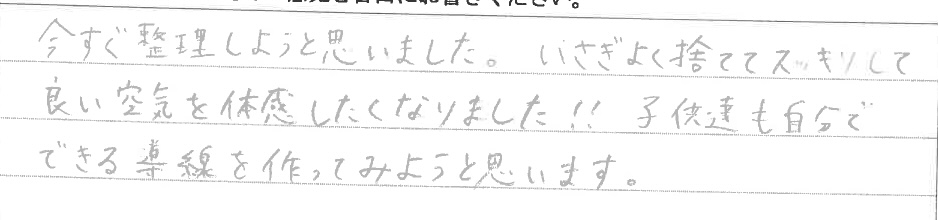 今すぐ整理しようと思いました。いさぎよく捨ててスッキリして
良い空気を体感したくなりました!! 子供達も自分で
できる導線を作ってみようと思います。